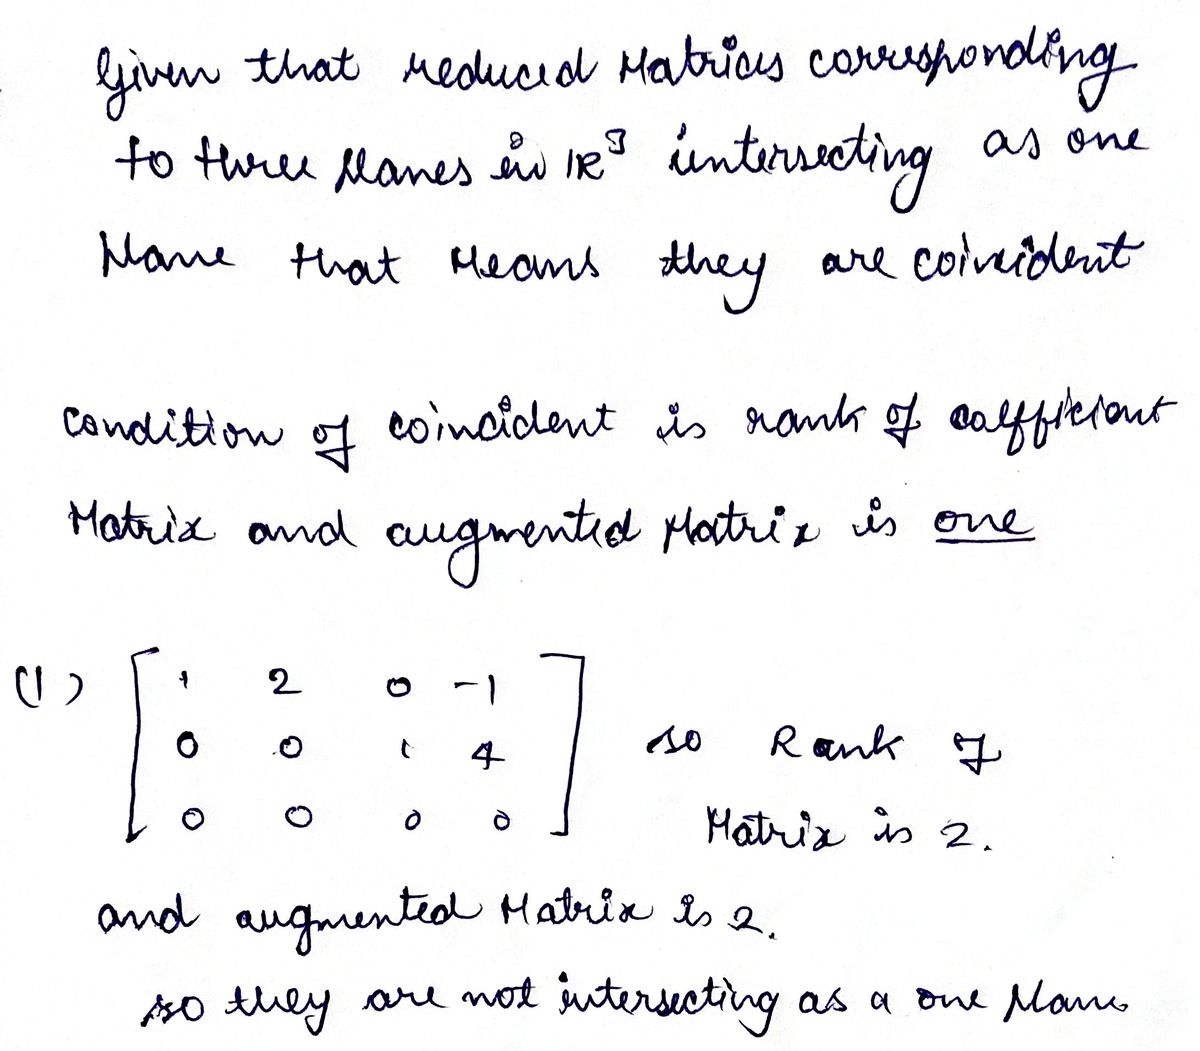 Given that reduced Matrices corresponding
to three planes in IR³ intersecting as one
plane that means they are coincident
condition of coincident is rank of coefficient
Matrix and augmented Matrix is one
(1) [ 1 2 0 -1
0 0 1 4
0 0 0 0 ]
so Rank of
Matrix is 2.
and augmented Matrix is 2.
so they are not intersecting as a one plane